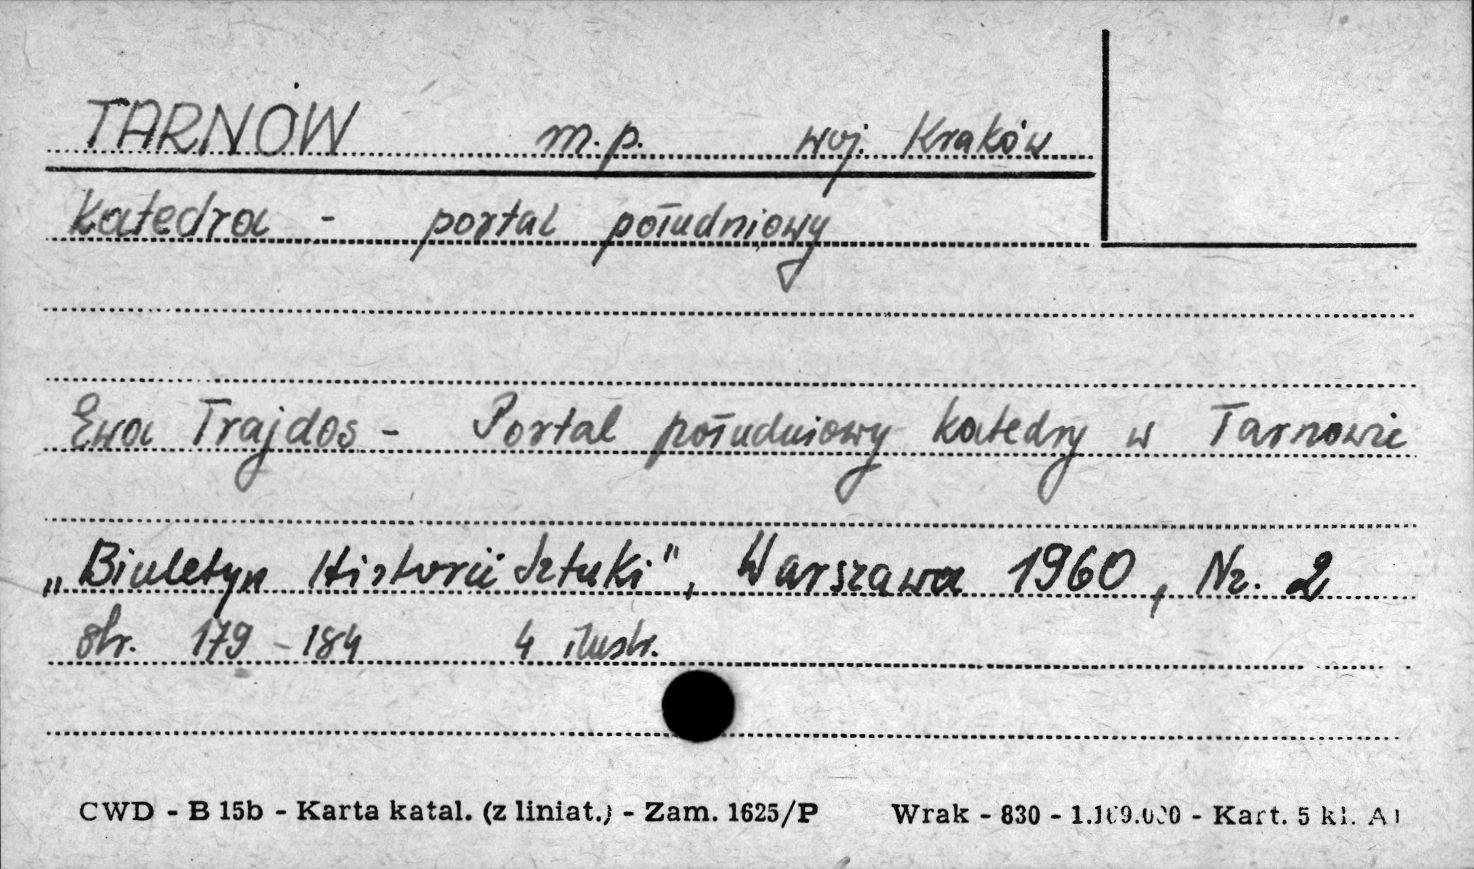 TARNÓW m.p. woj. Kraków
Katedra - portal południowy
Ewa Trajdos - Portal południowy katedry w Tarnowie
„Biuletyn Historii Sztuki", Warszawa 1960, Nr. 2
str. 179 - 184 4 ilustr.
CWD - B 15b - Karta katal. (z liniat.) - Zam. 1625/P Wrak - 830 - - Kart. 5 kl.